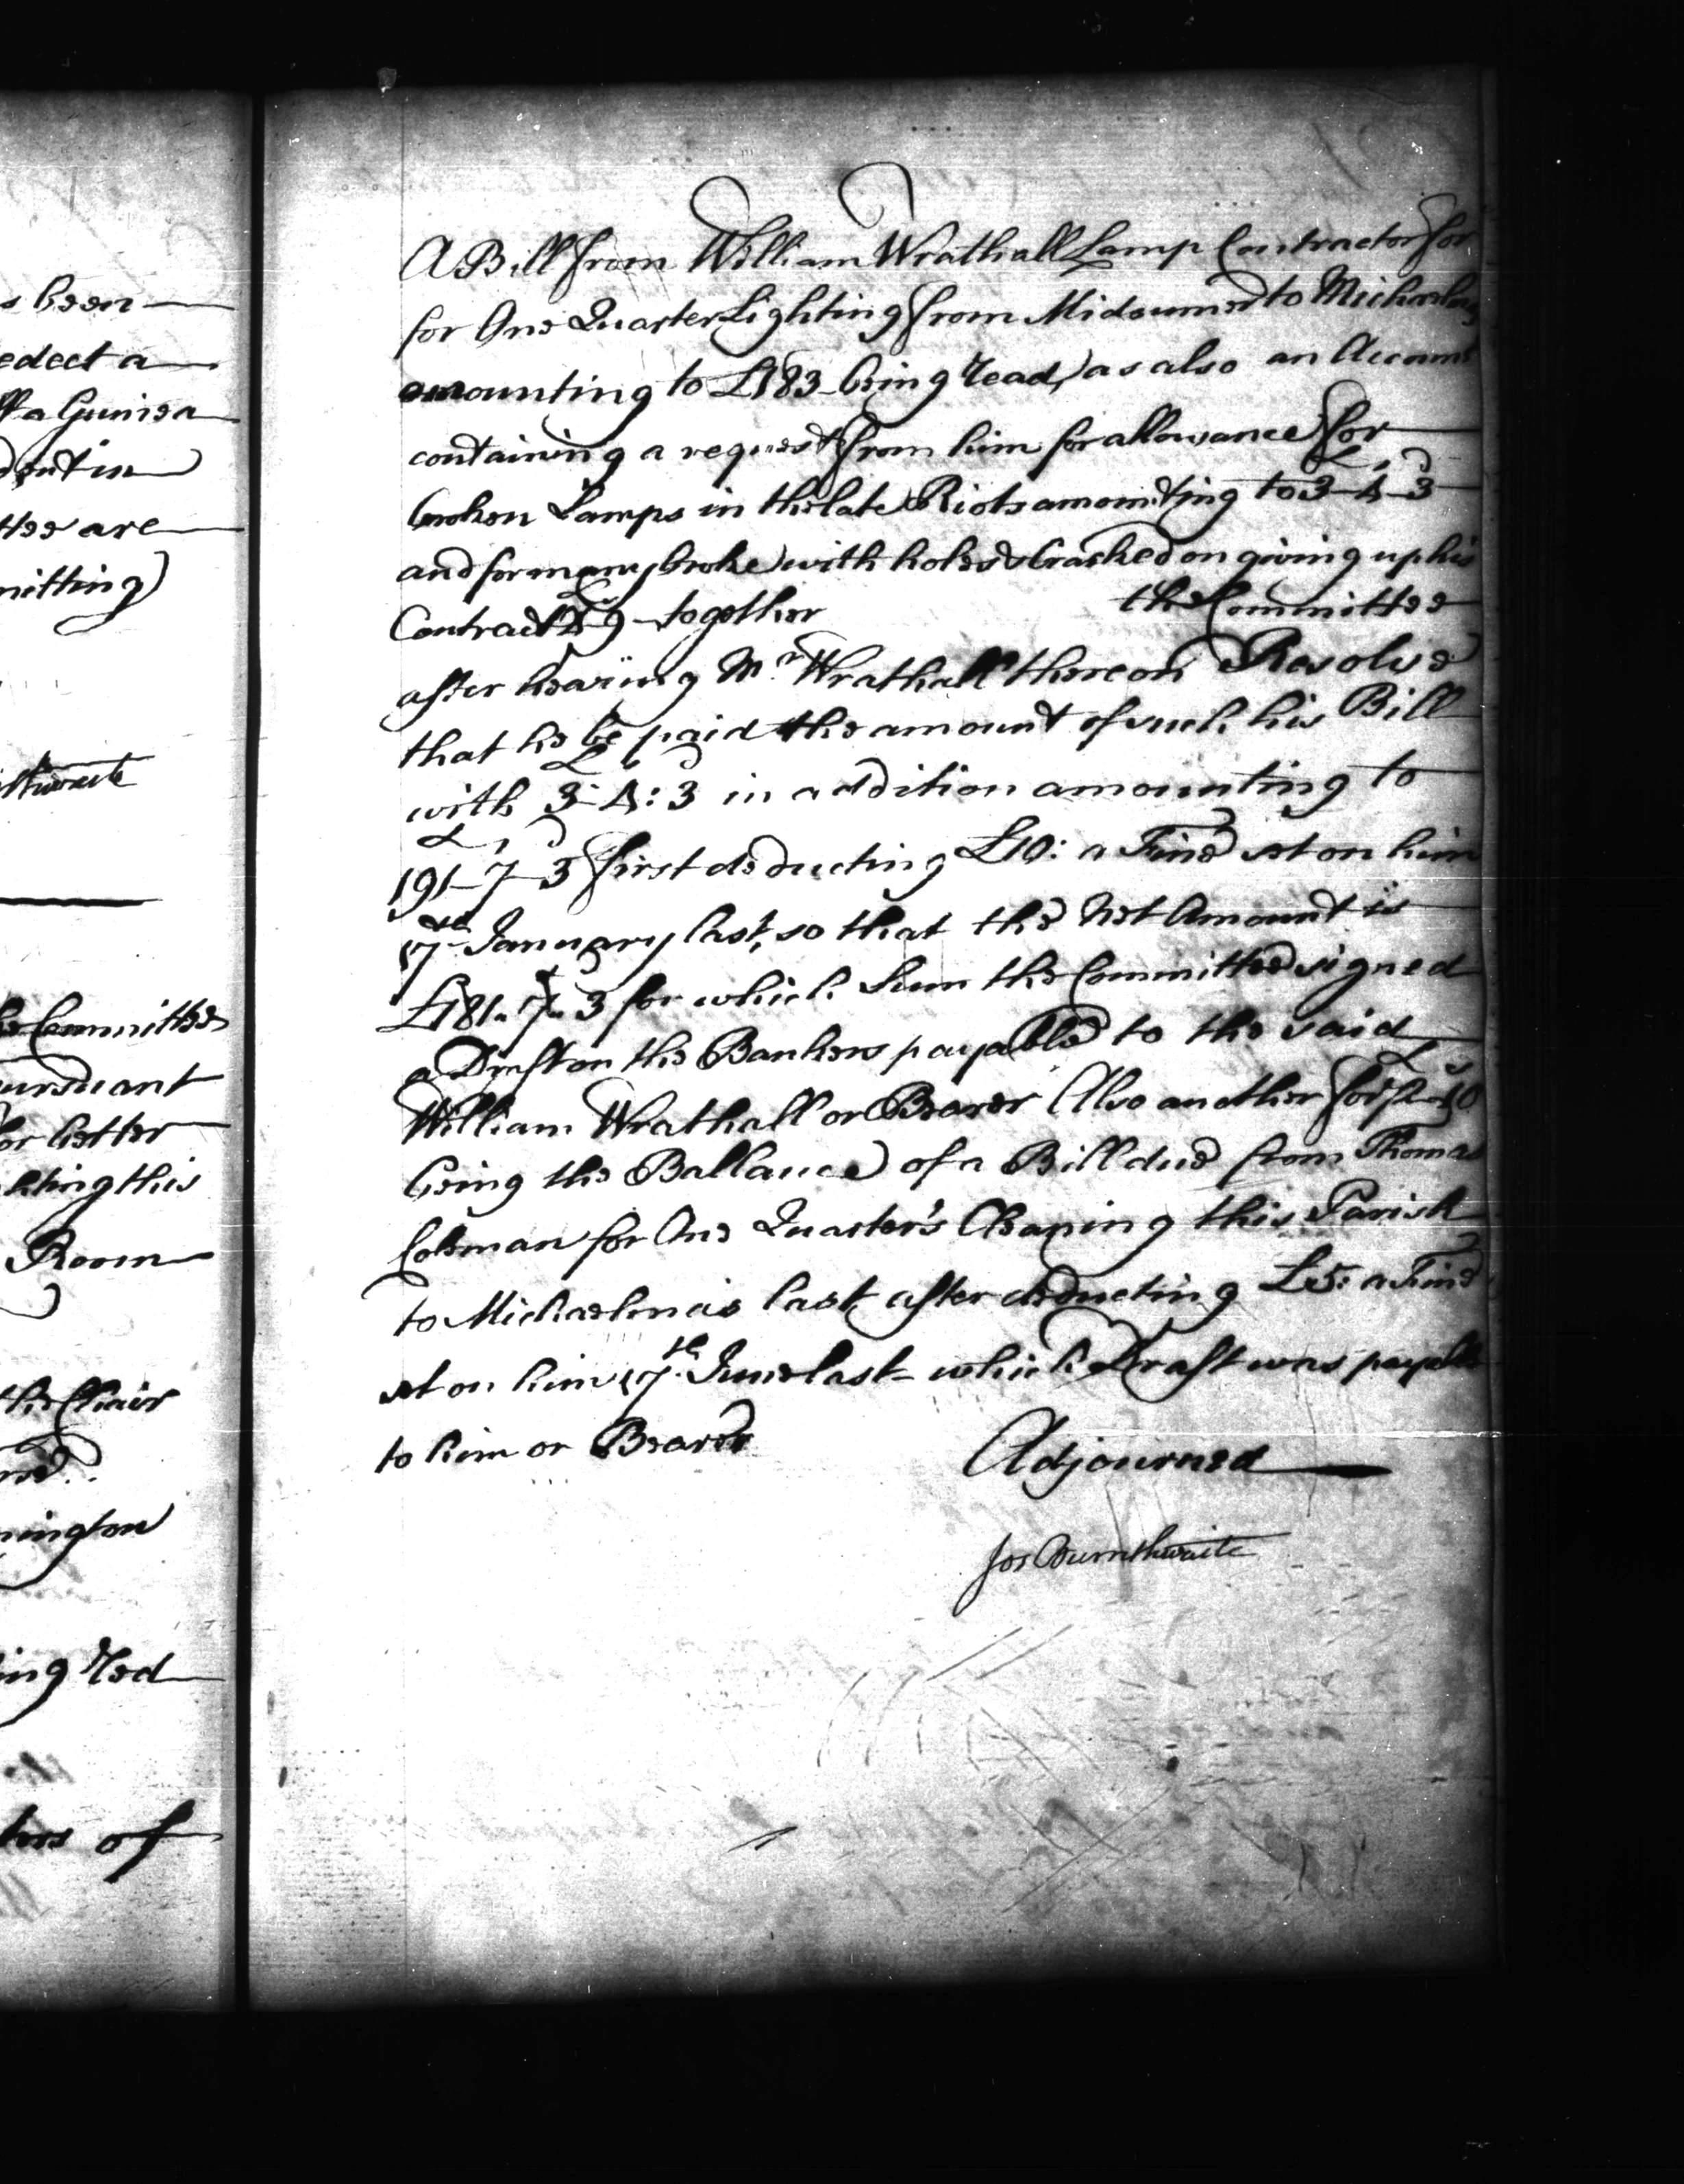 s been
edect a
ff a Guinea
dent in
ttee are
mitting
thwaite
he Committee
ursuant
or better
hting this
Room
the Chair
nington
ing Red
ters of
A Bill from William Wrathall Lamp Contractor for
for One Quarter Lighting from Midsumer to Michaelmas
amounting to £183 being read, as also an Account
containing a request from him for allowance for
broken Lamps in the late Riots amounting to 3-4-3
and for many broke with holes & Cracked on giving up his
Contract together the Committee
after hearing Mr. Wrathall thereon Resolve
that he be paid the amount of such his Bill
£ s d
with 3-4:3 in addition amounting to
£ s d
191-7-3 first deducting £10: a Fine set on him
17th January last, so that the Net Amount is
£181.7.3 for which Sum the Committee signed
a Draft on the Bankers payable to the said
William Wrathall or Bearer Also another for
being the Ballance of a Bill due from Thomas
Coleman for One Quarter's Cleaning this Parish
to Michaelmas last, after deducting £5: a Fine
set on him 17th June last which Draft was payable
to him or Bearer
Adjourned
Jos Burnthwaite